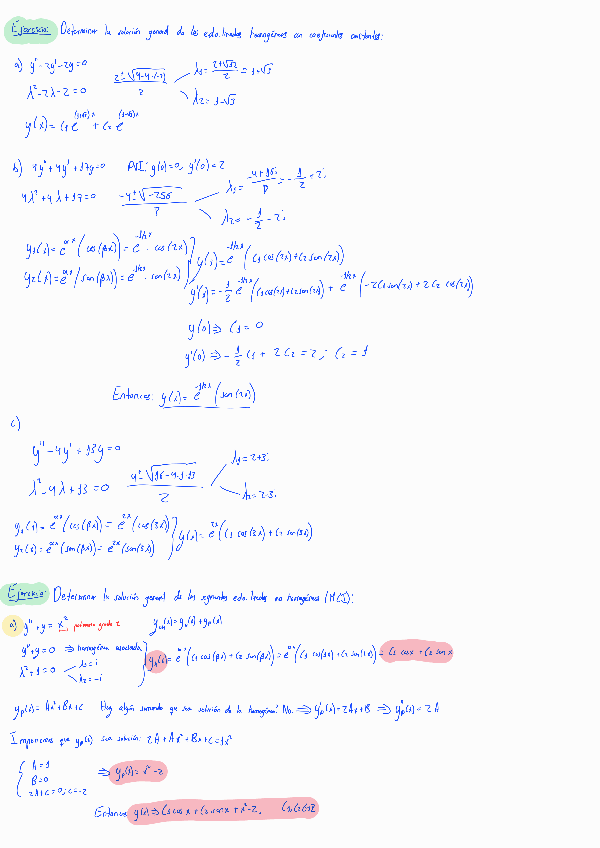 Ejercicio: Determinar la solución general de las edo. lineales homogéneas con coeficientes constantes:
a) y'' - 2y' - 2y = 0
λ² - 2λ - 2 = 0
2 ± √(4 - 4·(-2)) / 2
λ1 = (2 + √12) / 2 = 1 + √3
λ2 = 1 - √3
y(x) = C1 e^((1+√3)x) + C2 e^((1-√3)x)
b) 4y'' + 4y' + 17y = 0 PVI: y(0) = 0, y'(0) = 2
4λ² + 4λ + 17 = 0
-4 ± √-256 /
λ1 = (-4 + 16i) / 8 = -1/2 + 2i
λ2 = -1/2 - 2i
y1(x) = e^(αx) (cos(βx)) = e^(-1/2x) · cos(2x)
y2(x) = e^(αx) (sen(βx)) = e^(-1/2x) · sen(2x)
y(x) = e^(-1/2x) (C1 cos(2x) + C2 sen(2x))
y'(x) = -1/2 e^(-1/2x) (C1 cos(2x) + C2 sen(2x)) + e^(-1/2x) (-2C1 sen(2x) + 2C2 cos(2x))
y(0) ⇒ C1 = 0
y'(0) ⇒ -1/2 C1 + 2C2 = 2; C2 = 1
Entonces: y(x) = e^(-1/2x) (sen(2x))
c)
y'' - 4y' + 13y = 0
λ² - 4λ + 13 = 0
4 ± √(16 - 4·1·13) / 2
λ1 = 2+3i
λ2 = 2-3i
y1(x) = e^(αx) (cos(βx)) = e^(2x) (cos(3x))
y2(x) = e^(αx) (sen(βx)) = e^(2x) (sen(3x))
y(x) = e^(2x) (C1 cos(3x) + C2 sen(3x))
Ejercicio: Determinar la solución general de las siguientes edo. lineales no homogéneas (MCI):
a) y'' + y = x² polinomio grado 2
y'' + y = 0 ⇒ homogénea asociada
λ² + 1 = 0
λ1 = i
λ2 = -i
yh(x) = e^(αx) (C1 cos(βx) + C2 sen(βx)) = e^(0x) (C1 cos(1x) + C2 sen(1x)) = C1 cos x + C2 sen x
yp(x) = Ax² + Bx + C Hay algún sumando que sea solución de la homogénea? No. ⇒ y'p(x) = 2Ax + B ⇒ y''p(x) = 2A
Imponemos que yp(x) sea solución: 2A + Ax² + Bx + C = 1x²
A = 1
B = 0
2A + C = 0; C = -2
⇒ yp(x) = x² - 2
Entonces y(x) ⇒ C1 cos x + C2 sen x + x² - 2,